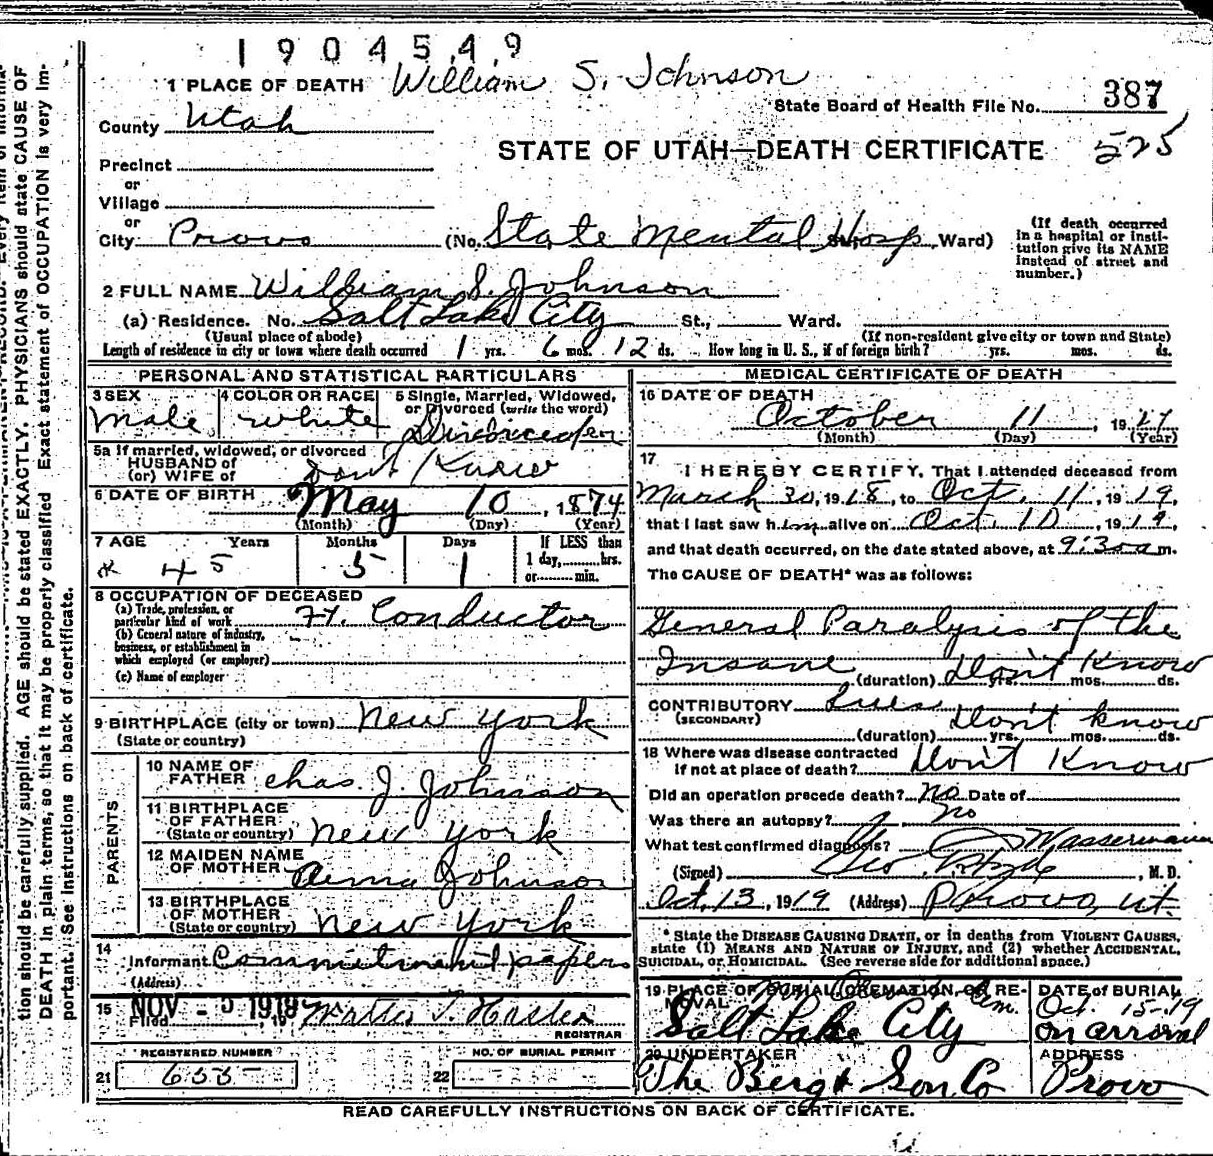 1904549
William S. Johnson
1 PLACE OF DEATH
State Board of Health File No. 387
County Utah
STATE OF UTAH—DEATH CERTIFICATE 525
Precinct
or
Village
or
City Provo (No. State Mental Hosp, Ward)
(If death occurred in a hospital or insti-
tution give its NAME
instead of street and
number.)
2 FULL NAME William S. Johnson
(a) Residence. No. Salt Lake City St., Ward.
(Usual place of abode) (If non-resident give city or town and State)
Length of residence in city or town where death occurred 1 yrs. 6 mos. 12 ds. How long in U. S., if of foreign birth? yrs. mos. ds.
PERSONAL AND STATISTICAL PARTICULARS
3 SEX Male
4 COLOR OR RACE White
5 Single, Married, Widowed,
or Divorced (write the word)
5a If married, widowed, or divorced
HUSBAND of
(or) WIFE of Dont Know
6 DATE OF BIRTH May 10, 1874
(Month) (Day) (Year)
7 AGE Years Months Days If LESS than
1 day, hrs.
or min.
45 5 1
8 OCCUPATION OF DECEASED
(a) Trade, profession, or
particular kind of work Ft. Conductor
(b) General nature of industry,
business, or establishment in
which employed (or employer)
(c) Name of employer
9 BIRTHPLACE (city or town) New York
(State or country)
PARENTS
10 NAME OF
FATHER Chas. J. Johnson
11 BIRTHPLACE
OF FATHER
(State or country) New York
12 MAIDEN NAME
OF MOTHER Johnson
13 BIRTHPLACE
OF MOTHER
(State or country) New York
14 Informant Commitment papers
(Address)
15 Filed NOV - 5 1919, 19 Walter T. Hasler
REGISTRAR
REGISTERED NUMBER
21 655
NO. OF BURIAL PERMIT
22
MEDICAL CERTIFICATE OF DEATH
16 DATE OF DEATH
October 11, 19
(Month) (Day) (Year)
17 I HEREBY CERTIFY, That I attended deceased from
March 30, 1918, to Oct. 11, 1919,
that I last saw him alive on Oct. 10, 1919,
and that death occurred, on the date stated above, at 9:30 a m.
The CAUSE OF DEATH* was as follows:
General Paralysis of the
Insane (duration) Don't Know yrs. mos. ds.
CONTRIBUTORY Lues
(SECONDARY)
(duration) Don't know yrs. mos. ds.
18 Where was disease contracted
if not at place of death? Don't Know
Did an operation precede death? No Date of
Was there an autopsy? No
What test confirmed diagnosis? Wassermann
(Signed) Geo. Hyde, M. D.
Oct. 13, 1919 (Address) Provo, Ut.
* State the DISEASE CAUSING DEATH, or in deaths from VIOLENT CAUSES,
state (1) MEANS AND NATURE OF INJURY, and (2) whether ACCIDENTAL,
SUICIDAL, or HOMICIDAL. (See reverse side for additional space.)
19 PLACE OF BURIAL, CREMATION, OR RE-
MOVAL Cem.
Salt Lake City
DATE of BURIAL
Oct. 15-19
on arrival
20 UNDERTAKER
The Berg & Son Co
ADDRESS
Provo
READ CAREFULLY INSTRUCTIONS ON BACK OF CERTIFICATE.
tion should be carefully supplied. AGE should be stated EXACTLY. PHYSICIANS should state CAUSE OF
DEATH in plain terms, so that it may be properly classified. Exact statement of OCCUPATION is very im-
portant. See instructions on back of certificate.